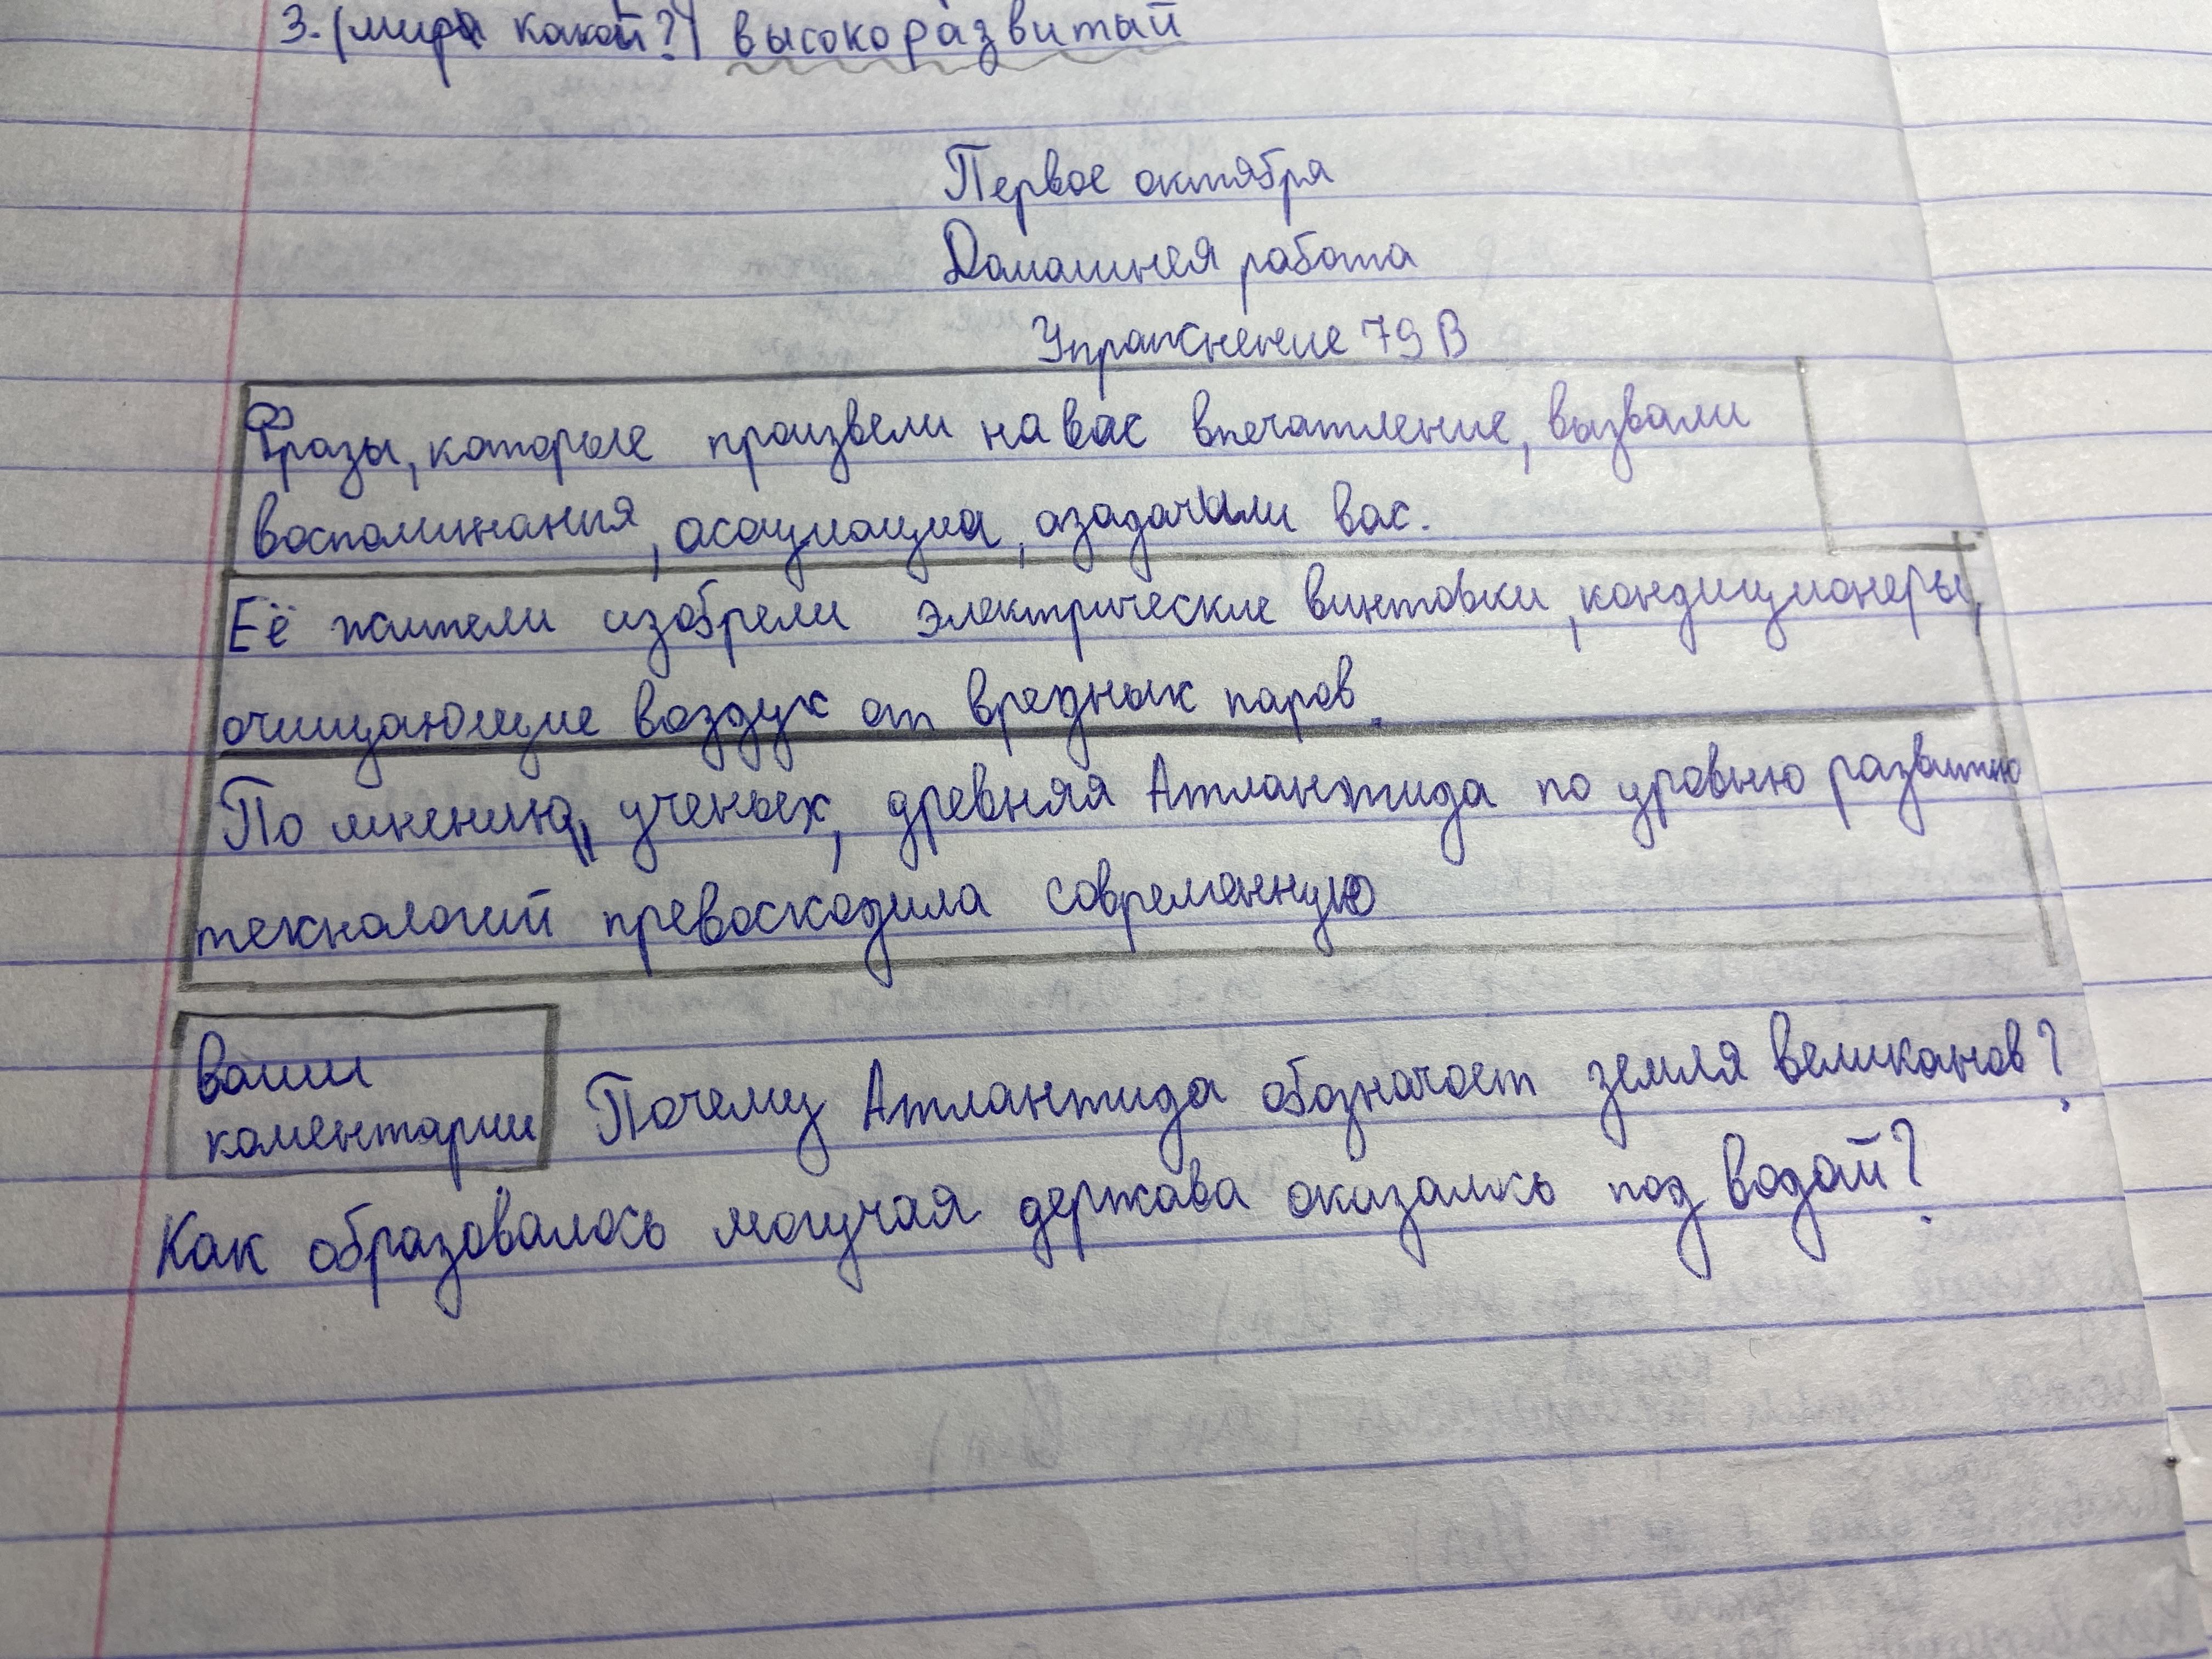 3. (мира какой?) высокоразвитый
Первое октября
Домашнея работа
Упражнение 79В
Фразы, которые произвели на вас впечатление, вызвали
воспоминания, асоциациа, азадачили вас.
Её жители изобрели электрические винтовки, кондиционеры,
очищающие воздух от вредных паров.
По мнению, ученых, древняя Атлантида по уровню развитию
технологий превосходила современную
ваши
коментарии Почему Атлантида обозначает земля великанов?
Как образовалось могучая держава оказались под водой?